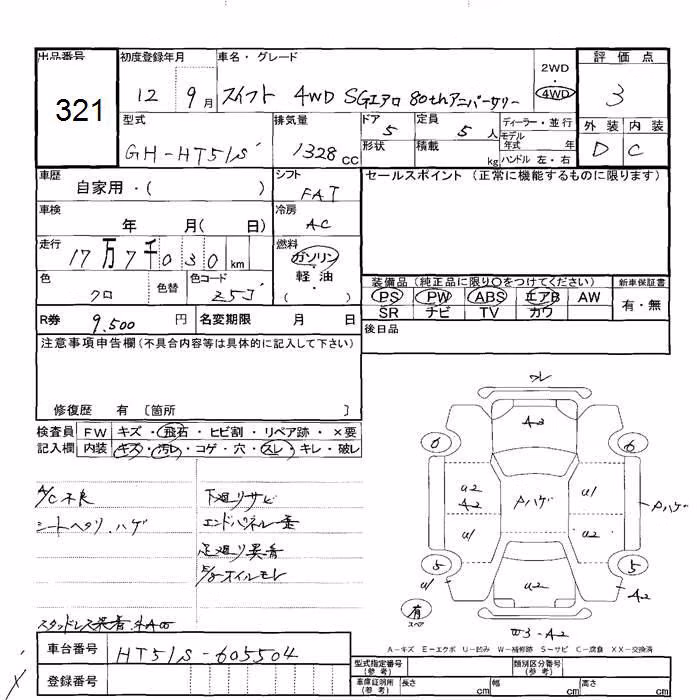 出品番号 初度登録年月 車名・グレード 2WD・4WD 評価点
321 12 9月 スイフト 4WD SGエアロ 80thアニバーサリー 3
型式 排気量 ドア 定員 ディーラー・並行 外装 内装
GH-HT51S 1328 CC 5 5人 モデル年式 年 D C
形状 積載 kg ハンドル 左・右
車歴 シフト セールスポイント (正常に機能するものに限ります)
自家用・( ) FAT
車検 冷房
年 月( 日) AC
走行 燃料
17万7千030km ガソリン・軽・油・( )
色 色替 色コード 装備品 (純正品に限り○をつけてください) 新車保証書
クロ Z5J PS PW ABS エアB AW 有・無
SR ナビ TV カワ
R券 9,500円 名変期限 月 日 後日品
注意事項申告欄(不具合内容等は具体的に記入して下さい)
修復歴 有 〔箇所 〕
検査員 FW キズ・飛石・ヒビ割・リペア跡・×要
記入欄 内装 キズ・汚レ・コゲ・穴・スレ・キレ・破レ
A/C不良 下廻リサビ
シートヘタリ.ハゲ エンドパネル一歪
足廻リ異音
オイルモレ
ワレ
A3
6 6
U2 A2 Pハゲ U1 Pハゲ
U1 U2
5 5
U1 U2 A2
有 スペア
W3-A2
A-キズ E-エクボ U-凹み W-補修跡 S-サビ C-腐食 XX-交換済
車台番号 HT51S-605504
登録番号
型式指定番号(参考) 類別区分番号(参考)
車庫証明用(参考) 長さ cm 幅 cm 高さ cm